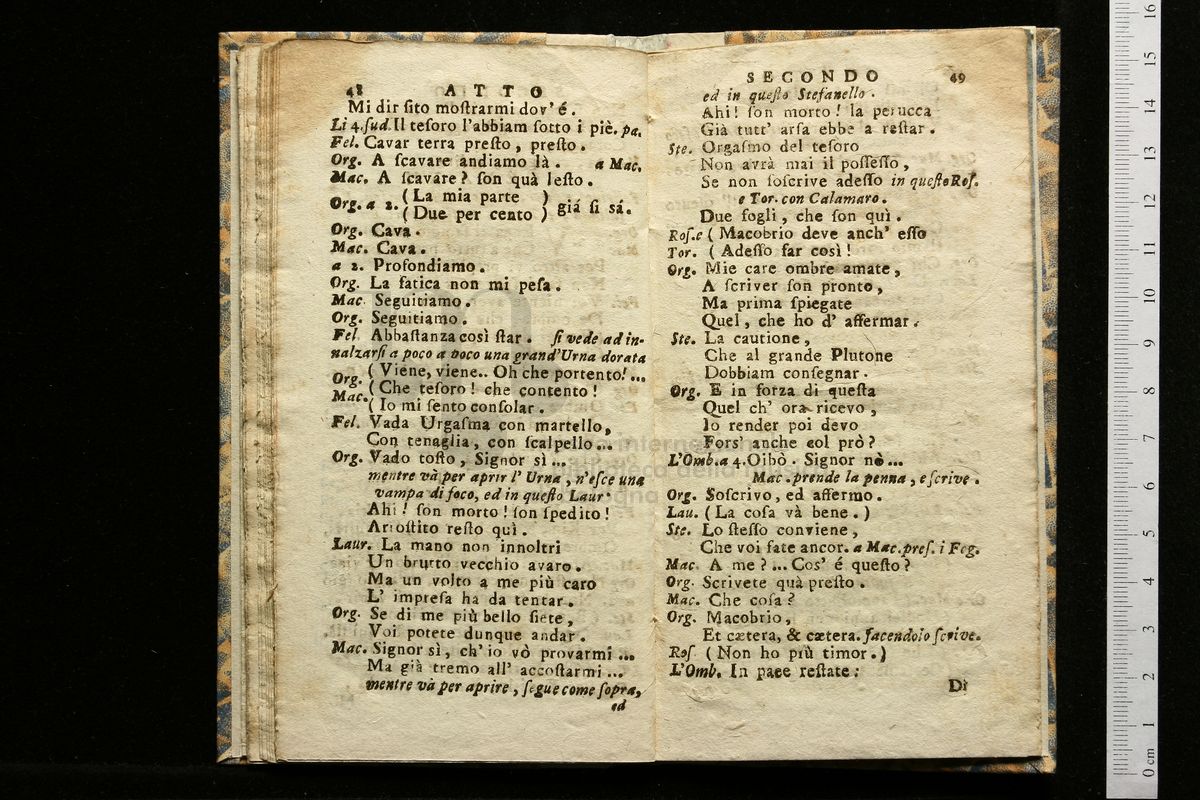 48 ATTO
Mi dir ſito moſtrarmi dov' é.
Li 4.ſud. Il teſoro l'abbiam ſotto i piè. pa.
Fel. Cavar terra preſto, preſto.
Org. A ſcavare andiamo là. a Mac.
Mac. A ſcavare? ſon quà leſto.
Org. a 2. ( La mia parte )
( Due per cento ) giá ſi sá.
Org. Cava.
Mac. Cava.
a 2. Profondiamo.
Org. La fatica non mi peſa.
Mac. Seguitiamo.
Org. Seguitiamo.
Fel. Abbaſtanza così ſtar. ſi vede ad in-
nalzarſi a poco a poco una grand'Urna dorata
( Viene, viene.. Oh che portento! ...
Org. ( Che teſoro! che contento!
Mac. ( Io mi ſento conſolar.
Fel. Vada Urgaſma con martello,
Con tenaglia, con ſcalpello...
Org. Vado toſto, Signor sì ...
mentre và per aprir l' Urna, n'eſce una
vampa di foco, ed in queſto Laur.
Ahi! ſon morto! ſon ſpedito!
Arroſtito reſto quì.
Laur. La mano non innoltri
Un brutto vecchio avaro.
Ma un volto a me più caro
L' impreſa ha da tentar.
Org. Se di me più bello ſiete,
Voi potete dunque andar.
Mac. Signor sì, ch' io vò provarmi ...
Ma già tremo all' accoſtarmi ...
mentre và per aprire, ſegue come ſopra,
ed
SECONDO 49
ed in queſto Stefanello.
Ahi! ſon morto! la perucca
Già tutt' arſa ebbe a reſtar.
Ste. Orgaſmo del teſoro
Non avrà mai il poſſeſſo,
Se non ſoſcrive adeſſo in queſto Roſ.
e Tor. con Calamaro.
Due fogli, che ſon quì.
Roſ. e ( Macobrio deve anch' eſſo
Tor. ( Adeſſo far così!
Org. Mie care ombre amate,
A ſcriver ſon pronto,
Ma prima ſpiegate
Quel, che ho d' affermar.
Ste. La cautione,
Che al grande Plutone
Dobbiam conſegnar.
Org. E in forza di queſta
Quel ch' ora ricevo,
Io render poi devo
Forſ' anche col prò?
L'Omb. a 4. Oibò. Signor nò...
Mac. prende la penna, e ſcrive.
Org. Soſcrivo, ed affermo.
Lau. ( La coſa và bene. )
Ste. Lo ſteſſo conviene,
Che voi fate ancor. a Mac. preſ. i Fog.
Mac. A me? ... Cos' é queſto?
Org. Scrivete quà preſto.
Mac. Che coſa?
Org. Macobrio,
Et cætera, & cætera. facendolo ſcrive.
Roſ ( Non ho più timor. )
L'Omb. In pace reſtate:
Di